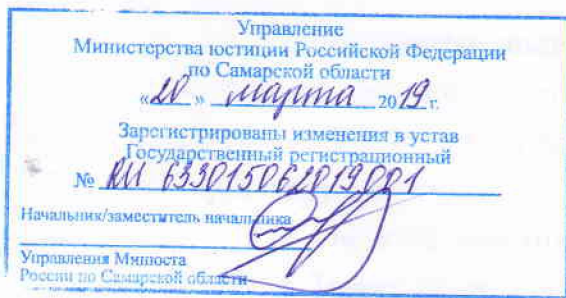 Управление
Министерства юстиции Российской Федерации
по Самарской области
«20» марта 2019 г.
Зарегистрированы изменения в устав
Государственный регистрационный
№ RU 633015062019001
Начальник/заместитель начальника
Управления Минюста
России по Самарской области